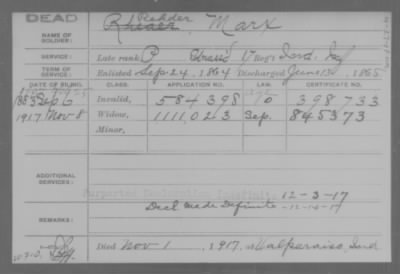 DEAD
Rehder
NAME OF SOLDIER: Rheder, Marx
SERVICE: Late rank P Unass'd Reg't Ind. Inf
TERM OF SERVICE: Enlisted Sep. 24, 1864 Discharged June 13, 1865
DATE OF FILING. CLASS. APPLICATION NO. LAW. CERTIFICATE NO.
1883 Sep 6 Invalid, 584398 398733
1917 Nov 8 Widow, 1111023 Sep. 845373
Minor,
ADDITIONAL SERVICES:
Purported Declaration Indefinite 12-3-17
Decl made Definite -12-14-17
REMARKS:
Died Nov 1, 1917, at Valparaiso, Ind